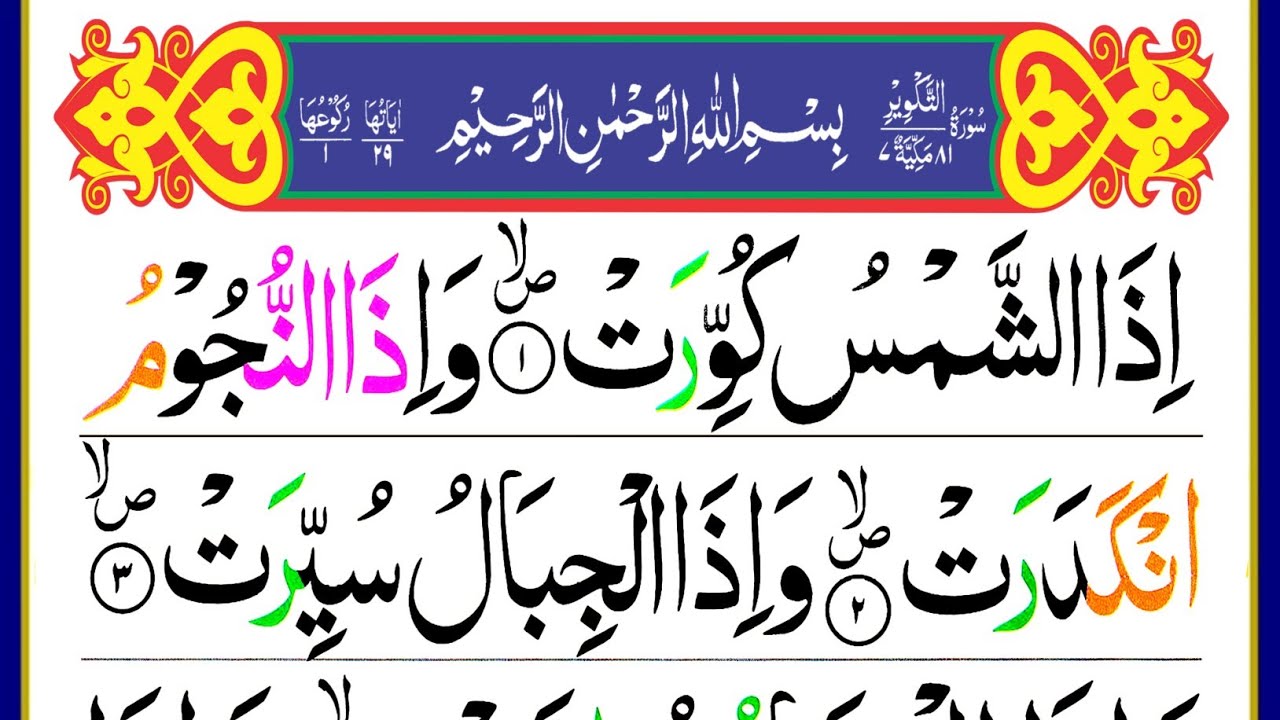 سُوْرَةُ التَّكْوِيْرِ ٨١ مَكِّيَّةٌ ٧ بِسْمِ اللّٰهِ الرَّحْمٰنِ الرَّحِيْمِ اٰيَاتُهَا ٢٩ رُكُوْعُهَا ١
اِذَا الشَّمْسُ كُوِّرَتْ ۙ ۪ ١ وَاِذَا النُّجُوْمُ
انْكَدَرَتْ ۙ ۪ ٢ وَاِذَا الْجِبَالُ سُيِّرَتْ ۙ ۪ ٣